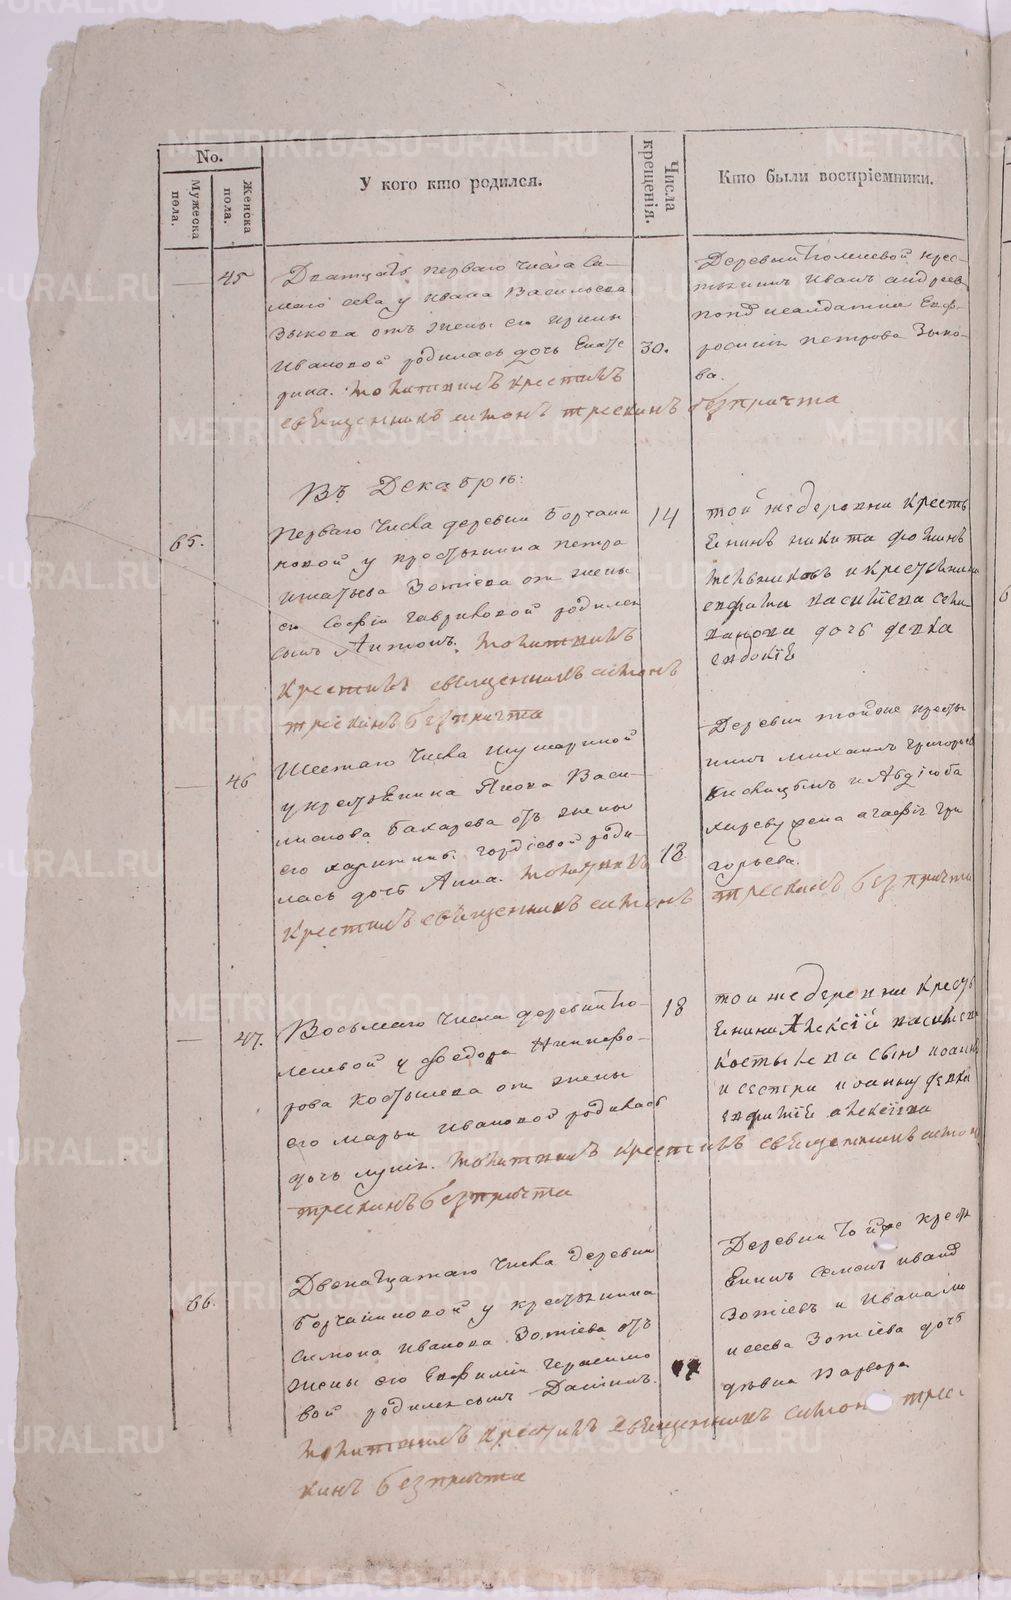 No.
Мужеска пола.
Женска пола.
У кого кто родился.
Числа крещенія.
Кто были воспріемники.
45
Дватцать перваго числа Са-
маго села у Ивана Васильева
Зыкова отъ жены ево Ирины
Ивановой родилась дочь Екате
рина. молитвилъ крестилъ
священникъ антонъ трескинъ безпричта
30.
крес-
тьянинъ Иванъ андреевъ
Евф-
росинія петрова Зыко-
ва.
Въ Декабрѣ:
65.
Перваго числа деревни Борчани
новой у крестьянина петра
игнатьева Зотіева отъ жены
ево Софіи гавриловой родился
сынъ Антонъ. молитвилъ
крестилъ священникъ антонъ
трескинъ безпричта
14
той жедеревни кресть
янинъ никита фоминъ
и крестьянина
дочь девка
евдокіе
46
Шестаго числа Шумариной
у крестьянина Якова Васи-
лискова Бахарева отъ жены
его харитины гордіевой роди-
лась дочь Анна. молитвилъ
крестилъ священникъ антонъ трескинъ безпричта
18
Деревни тойже кресть
нинъ михаилъ григорьевъ
жена агафія гри
горьева.
47.
Восьмаго числа деревни По-
левой у Федора Никифо-
рова Костылева отъ жены
его марьи ивановой родилась
дочь лукія. молитвилъ крестилъ священникъ антонъ
трескинъ безпричта
18
той жедеревни кресть
янина Алексія васильева
костылева сынъ
алексіева
66.
Двенатцатаго числа деревни
Борчаниновой у крестьянина
Симона Иванова Зотіева отъ
жены его Евфиміи герасимо
вой родился сынъ Даніилъ.
молитвилъ крестилъ священникъ антонъ трес-
кинъ безпричта
Деревни тойже кресть
янинъ Семенъ иванъ
Зотіевъ и Ивана мо
исеева Зотіева дочь
дѣвка Варвара
METRIKI.GASO-URAL.RU